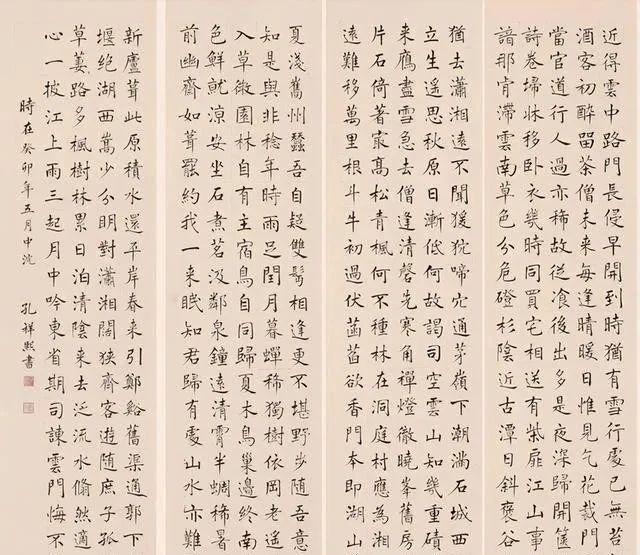 近得雲中路門長侵早開到時猶有雪行處已無苔
酒客初醉留茶僧未來每逢晴暖日惟見乞花栽門
當官道行人過亦稀故從飡後出多是夜深歸開篋
詩卷埽牀移卧衣幾時同買宅相送有柴扉江山事
諳那肯滯雲南草色分危磴杉陰近古潭日斜褒谷
猶去瀟湘遠不聞猨狖啼穴通茅嶺下潮滿石城西
立生遥思秋原日漸低何故謁司空雲山知幾重磧
来鴈盡雪急去僧逢清磬先寒角禪燈徹曉峯舊房
片石倚著家高松青楓何不種林在洞庭村應為湘
遠難移萬里根斗牛初過伏菡萏欲香門本即湖山
夏淺舊州蠶吾自疑雙鬢相逢更不堪野步随吾意
知是與非稔年時雨足閏月暮蟬稀獨樹依岡老遥
入草微園林自有主宿鳥自同歸夏木鳥巢邊終南
色鮮就涼安坐石煮茗汲鄰泉鐘遠清霄半蜩稀暑
前幽齋如葺罷約我一来眠知君歸有處山水亦
新廬葺此原積水還平岸春来引鄭谿舊渠通郭下
堰絶湖西嵩少分明對瀟湘闊狹齊客遊随庶子孤
草萋路多楓樹林累日泊清陰来去泛流水翛然適
心一披江上雨三起月中吟東省期司諫雲門悔不
時在癸卯年五月中浣 孔祥熙書